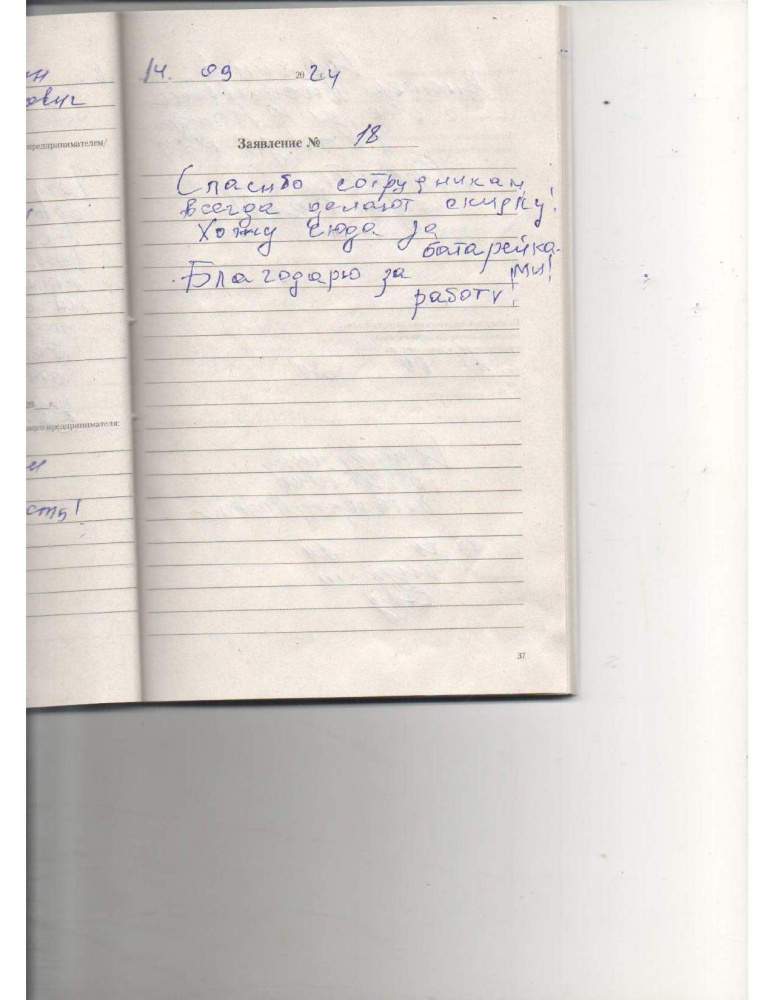 14. 09 2024
Заявление № 18
Спасибо сотрудникам,
всегда делают скидку!
Хожу сюда за
батарейка-
ми!
Благодарю за
работу!
предпринимателем/
20 г.
предпринимателя:
сть!
37